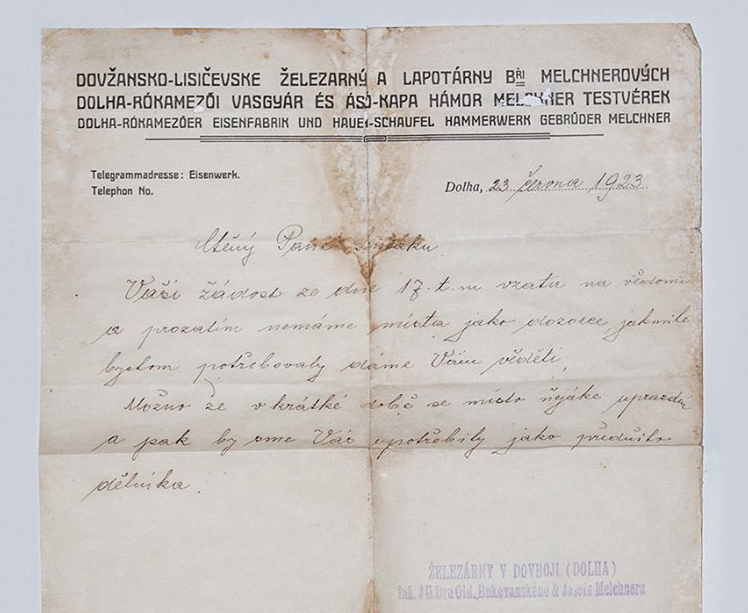 DOVŽANSKO-LISIČEVSKE ŽELEZARNY A LAPOTÁRNY BŘI MELCHNEROVÝCH
DOLHA-RÓKAMEZŐI VASGYÁR ÉS ÁSÓ-KAPA HÁMOR MELCHNER TESTVÉREK
DOLHA-RÓKAMEZŐER EISENFABRIK UND HAUEN-SCHAUFEL HAMMERWERK GEBRÜDER MELCHNER
Telegrammadresse: Eisenwerk.
Telephon No.
Dolha, 23 června 1923
Ctěný Pane
Vaší žádost ze dne 17.t.m vzata na vědomí
a prozatím nemáme místa jako dozorce, jakmile
bychom potřebovaly dáme Vám věděti,
Možno že v krátké době se místo nějáke uprazdní
a pak by sme Vás upotřebily jako
dělníka.
ŽELEZÁRNY V DOVHOJI (DOLHA)
Bukovanského & Josefa Melchnera